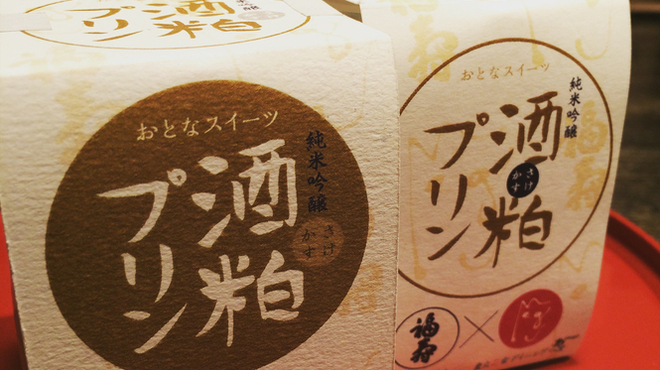 酒粕
プリン
おとなスイーツ
純米吟醸
酒粕
さけかす
プリン
おとなスイーツ
純米吟醸
酒粕
さけかす
プリン
福寿
×
福寿